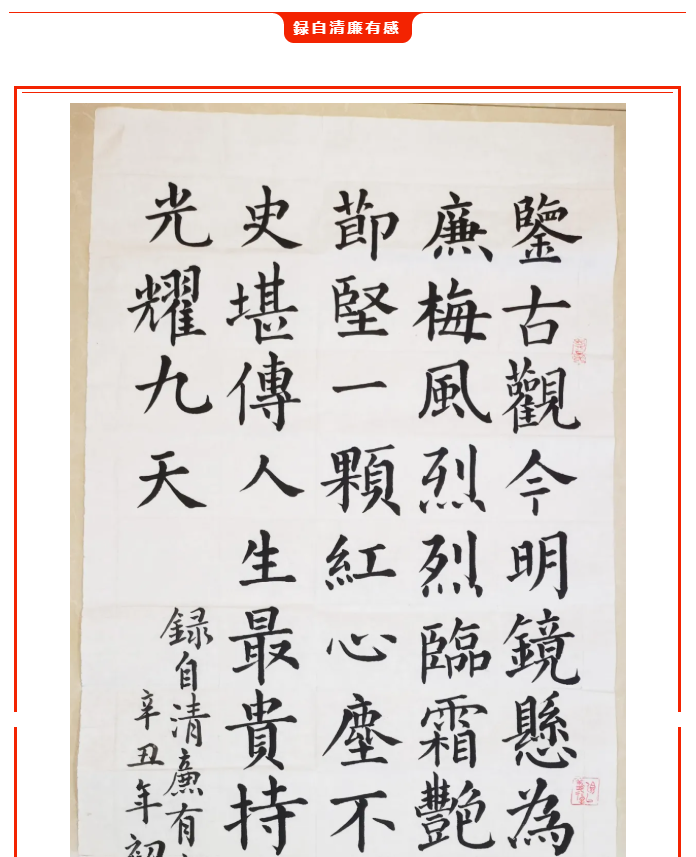 録自清廉有感
鑒古觀今明鏡懸為
廉梅風烈烈臨霜艷
節堅一顆紅心塵不
史堪傳人生最貴持
光耀九天
録自清廉有
辛丑年初